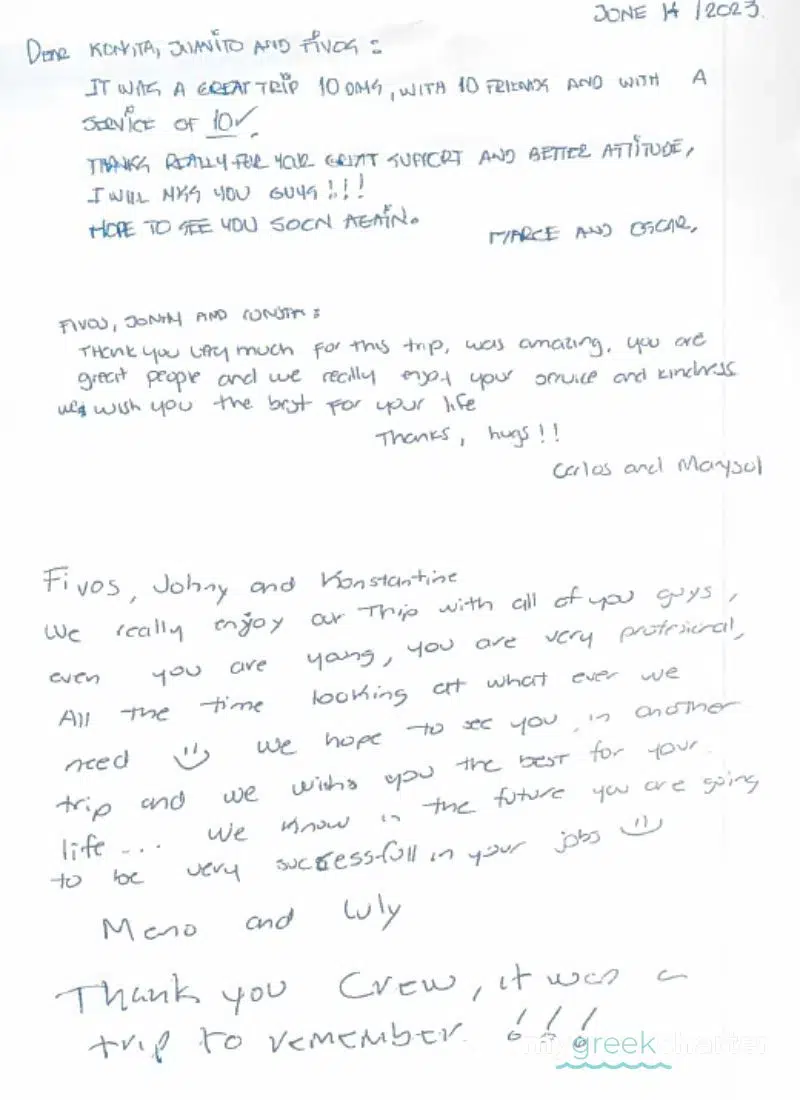 JUNE 14 / 2023.
DEAR KONITA, JUANITO AND FIVOS :
IT WAS A GREAT TRIP 10 DAYS, WITH 10 FRIENDS AND WITH A
SERVICE OF 10✓.
THANKS REALLY FOR YOUR GREAT SUPPORT AND BETTER ATTITUDE,
I WILL MISS YOU GUYS !!!
HOPE TO SEE YOU SOON AGAIN.
MARCE AND OSCAR,
FIVOS, JONNY AND :
Thank you very much for this trip, was amazing, you are
great people and we really enjoy your service and kindness
we wish you the best for your life
Thanks, hugs !!
Carlos and Marysol
Fivos, Johny and Konstantine
We really enjoy our Trip with all of you guys,
even you are yong, you are very profesional,
All the time looking at what ever we
need we hope to see you in another
trip and we wishs you the best for your
life ... we know in the future you are going
to be very successfull in your jobs
and Luly
Thank you Crew, it was a
trip to remember !!!
my greek charter